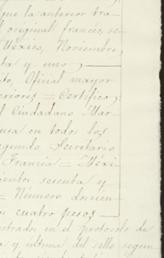 que la anterior tra-
original frances, se-
Mexico, Noviembre,
ta y uno;
do, Oficial mayor
eriores = Certifico;
l Ciudadano Mar-
usa en todos los
segundo Secretario
Francia = Mexi-
cientos sesenta y
= Número doscien-
os cuatro pesos
strados en el protocolo de
y ultima del sello segun